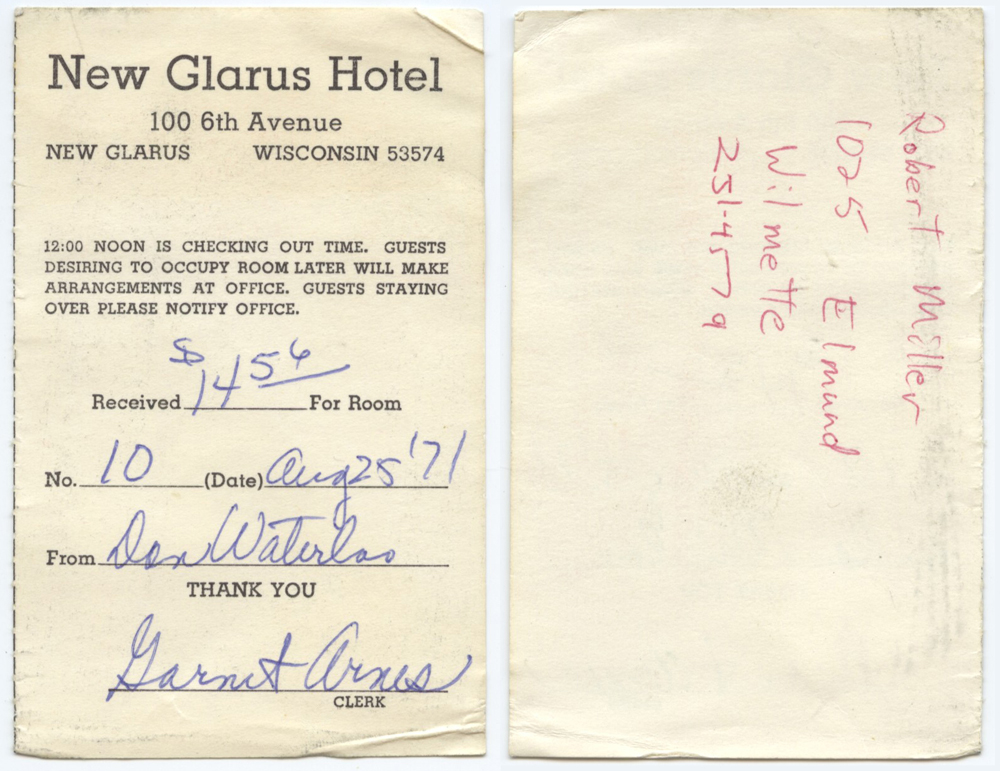 New Glarus Hotel
100 6th Avenue
NEW GLARUS WISCONSIN 53574
12:00 NOON IS CHECKING OUT TIME. GUESTS
DESIRING TO OCCUPY ROOM LATER WILL MAKE
ARRANGEMENTS AT OFFICE. GUESTS STAYING
OVER PLEASE NOTIFY OFFICE.
Received $14 56 For Room
No. 10 (Date) Aug 25 '71
From Don Waterloo
THANK YOU
Garnet Arnes
CLERK
Robert Miller
1025 Elmund
Wilmette
251-4579